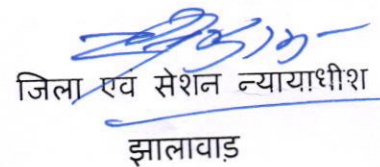 जिला एव सेशन न्यायाधीश
झालावाड़